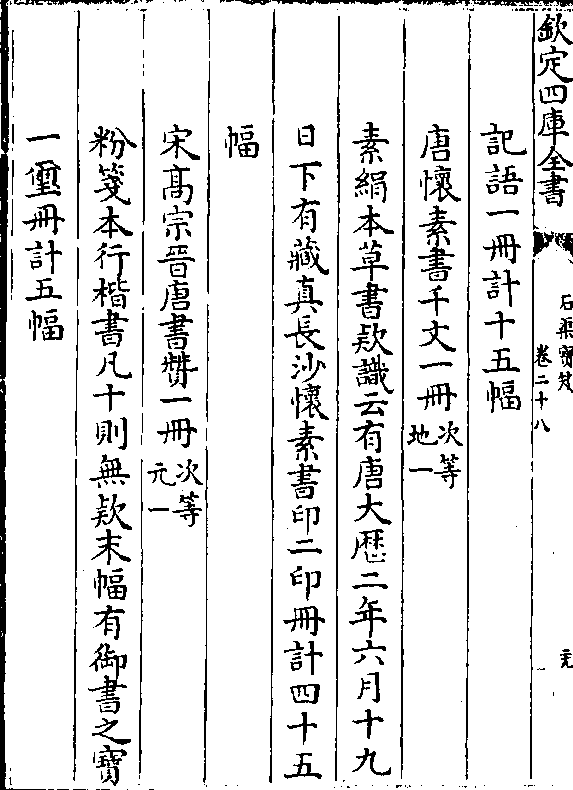 欽定四庫全書
石渠寶笈
卷二十八
記語一冊計十五幅
唐懷素書千文一冊次等
地一
素絹本草書欵識云有唐大歷二年六月十九
日下有藏真長沙懷素書印二印冊計四十五
幅
宋髙宗晉唐書贊一冊次等
元一
粉箋本行楷書凡十則無欵末幅有御書之寳
一璽冊計五幅